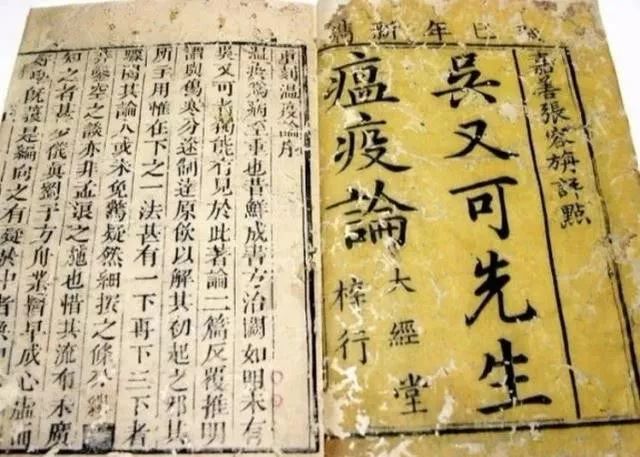 巳年新鐫
嘉善張容旃評點
吳又可先生
瘟疫論
大經堂
梓行
重刻温疫論序
温疫為病至重也昔鮮成書方治闕如明末有
吳又可者獨能有見於此著論二篇反覆推明
謂與傷寒分途制達原飲以解其初起之邪其
所主用惟在下之一法甚有一下再下三下者
驟閱其論人或未免驚疑然細按之條分縷
空之談亦非孟浪之施也惜其流有未廣
知之者甚少儀真劉子方舟業醫早成心虛而
好學既是編向之有疑其中者無